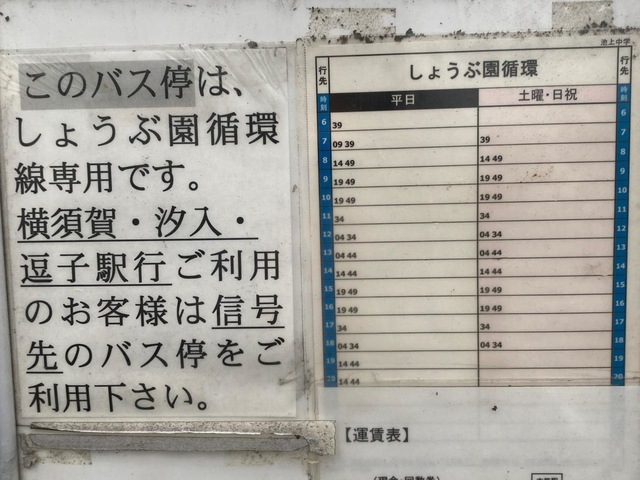 このバス停は、
しょうぶ園循環
線専用です。
横須賀・汐入・
逗子駅行ご利用
のお客様は信号
先のバス停をご
利用下さい。
池上中学
行先 しょうぶ園循環 行先
時刻 平日 土曜・日祝 時刻
6 39 6
7 09 39 39 7
8 14 49 14 49 8
9 19 49 19 49 9
10 19 49 19 49 10
11 34 34 11
12 04 34 04 34 12
13 04 44 04 44 13
14 14 44 14 44 14
15 19 49 19 49 15
16 19 49 19 49 16
17 34 34 17
18 04 34 04 34 18
19 14 44 19
20 14 44 20
【運賃表】